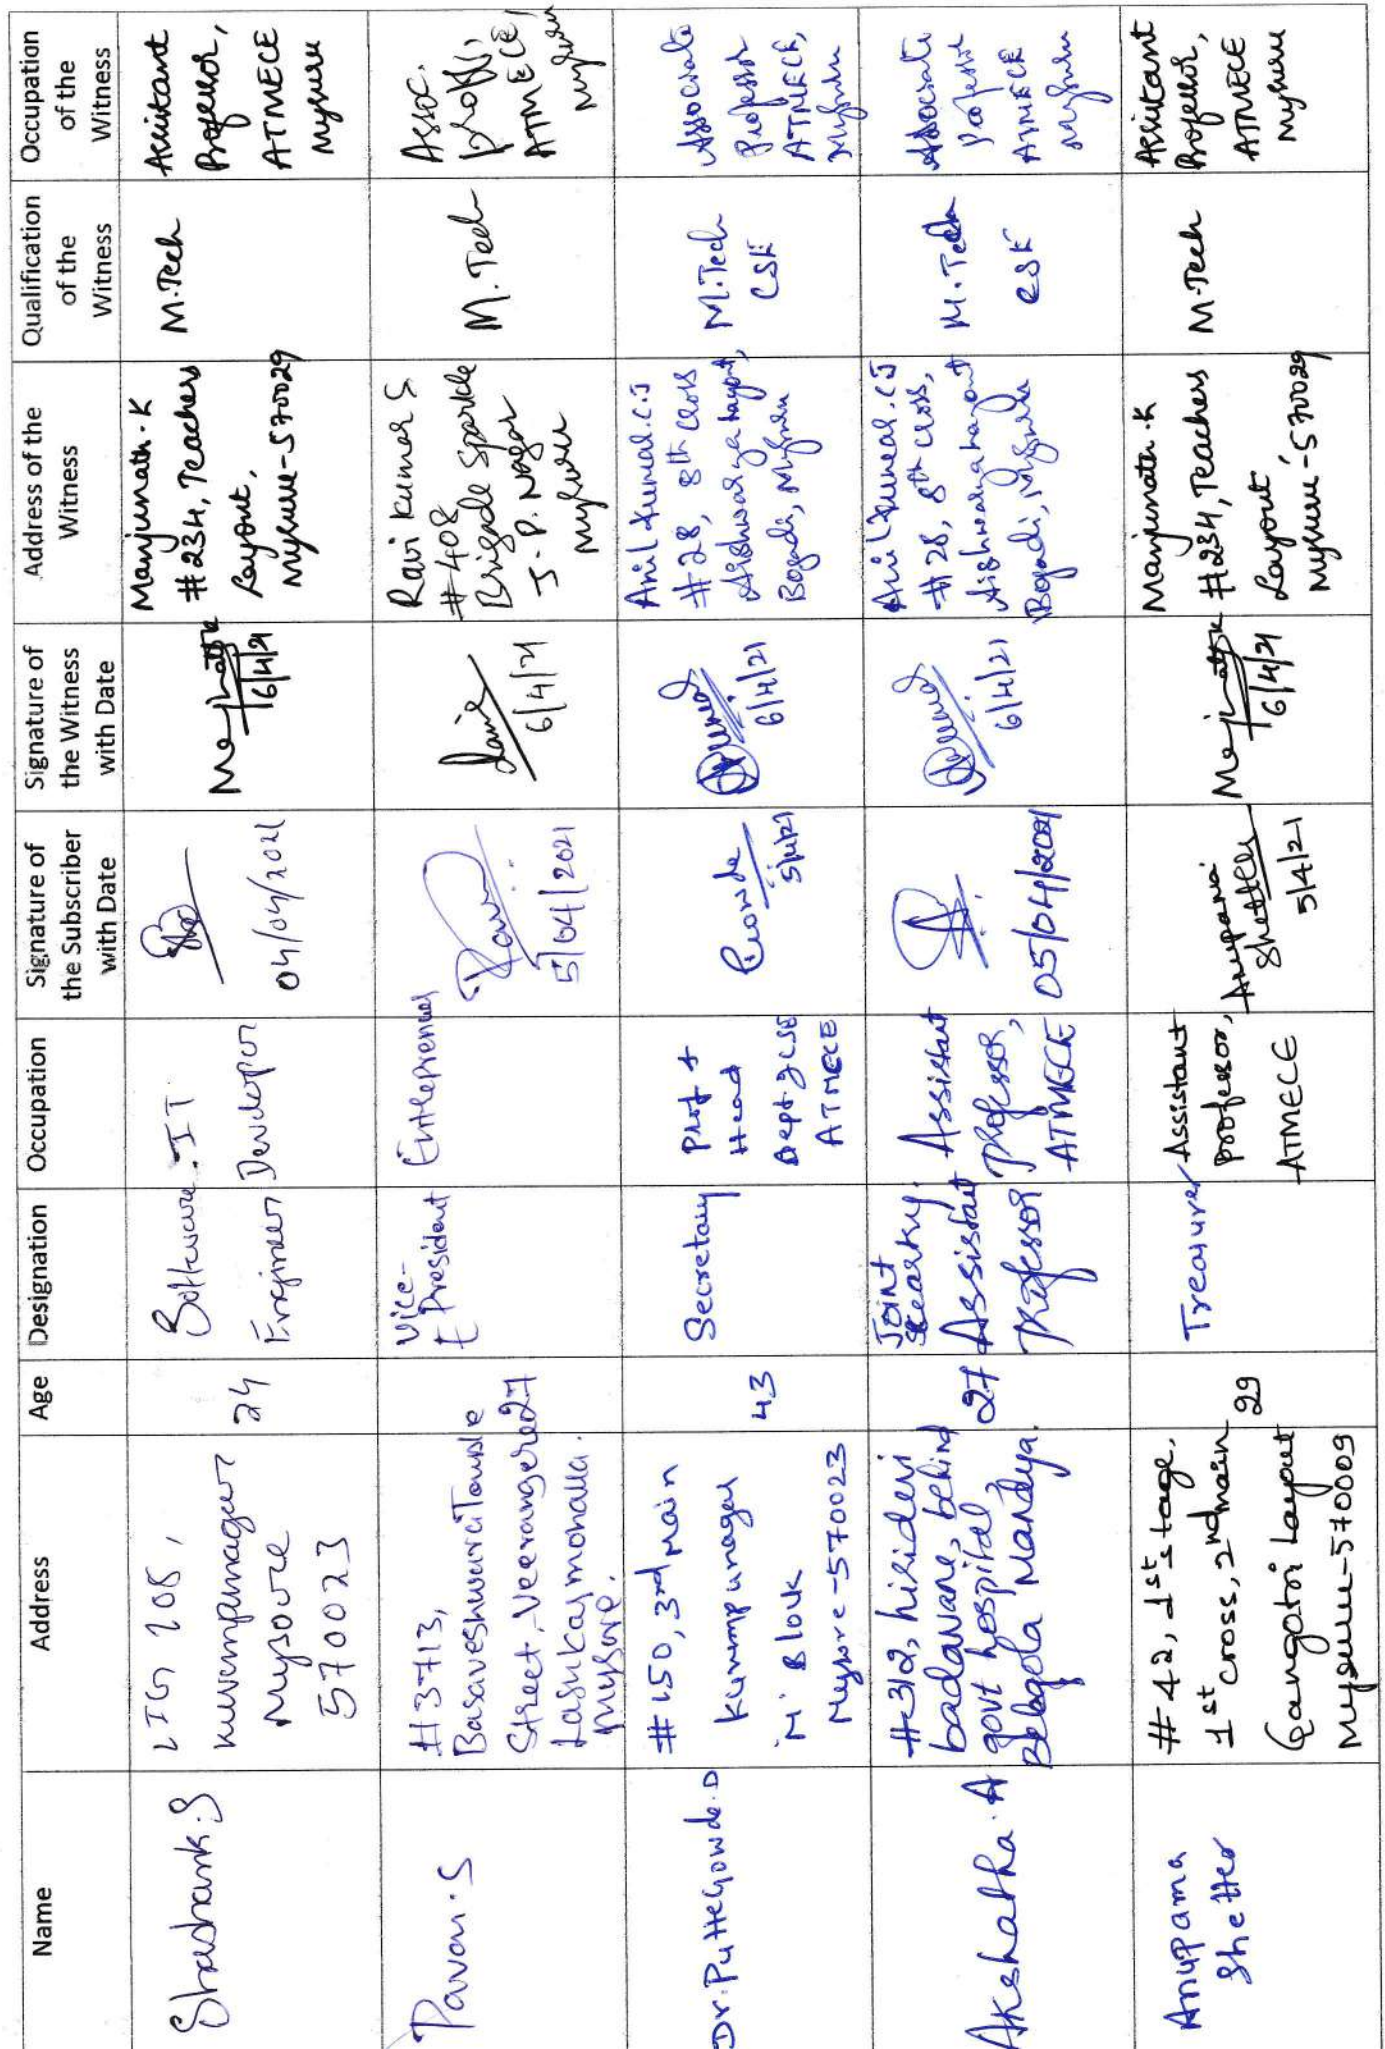 Name
Address
Age
Designation
Occupation
Signature of
the Subscriber
with Date
Signature of
the Witness
with Date
Address of the
Witness
Qualification
of the
Witness
Occupation
of the
Witness
Shashank.S
LIG 208,
kuvempunagar
Mysore
570023
24
Software
Engineer
IT
Developer
04/04/2021
6/4/21
Manjunath.K
#234, Teachers
Layout,
Mysuru-570029
M.Tech
Assistant
Professor,
ATMECE
Mysuru
Pavan.S
#3713,
Basaveshwara
Street, Veerangere
Laskar mohalla.
Mysore.
27
Vice-
President
Entrepreneur
5/04/2021
6/4/21
Ravi Kumar S
#408
Brigade Sparkle
J.P. Nagar
Mysuru
M.Tech
Assoc.
proff,
ATMECE,
Mysuru
Dr. PutteGowda.D
#150, 3rd Main
Kuvempunagar
'M' Block
Mysore-570023
43
Secretary
Prof &
Head
Dept of CSE
ATMECE
5/4/21
6/4/21
Anil Kumar.C.J
#28, 8th cross
Aishwarya Layout,
Bogadi, Mysuru
M.Tech
CSE
Associate
Professor
ATMECE,
Mysuru
Akshatha.A
#312, hiridevi
badavane, behind
govt hospital,
Belagola Mandya.
27
Joint
Secretary.
Assistant
Professor
Assistant
Professor,
ATMECE
05/04/2021
6/4/21
Anil Kumar.C J
#28, 8th cross,
Aishwarya Layout
Bogadi, Mysuru
M.Tech
CSE
Associate
Professor
ATMECE
Mysuru
Anupama
Shetter
#42, 1st stage,
1st cross, 2nd main
Gangotri Layout
Mysuru-570009
29
Treasurer
Assistant
professor,
ATMECE
Anupama
Shetter
5/4/21
6/4/21
Manjunath.K
#234, Teachers
Layout,
Mysuru-570029
M.Tech
Assistant
Professor,
ATMECE
Mysuru